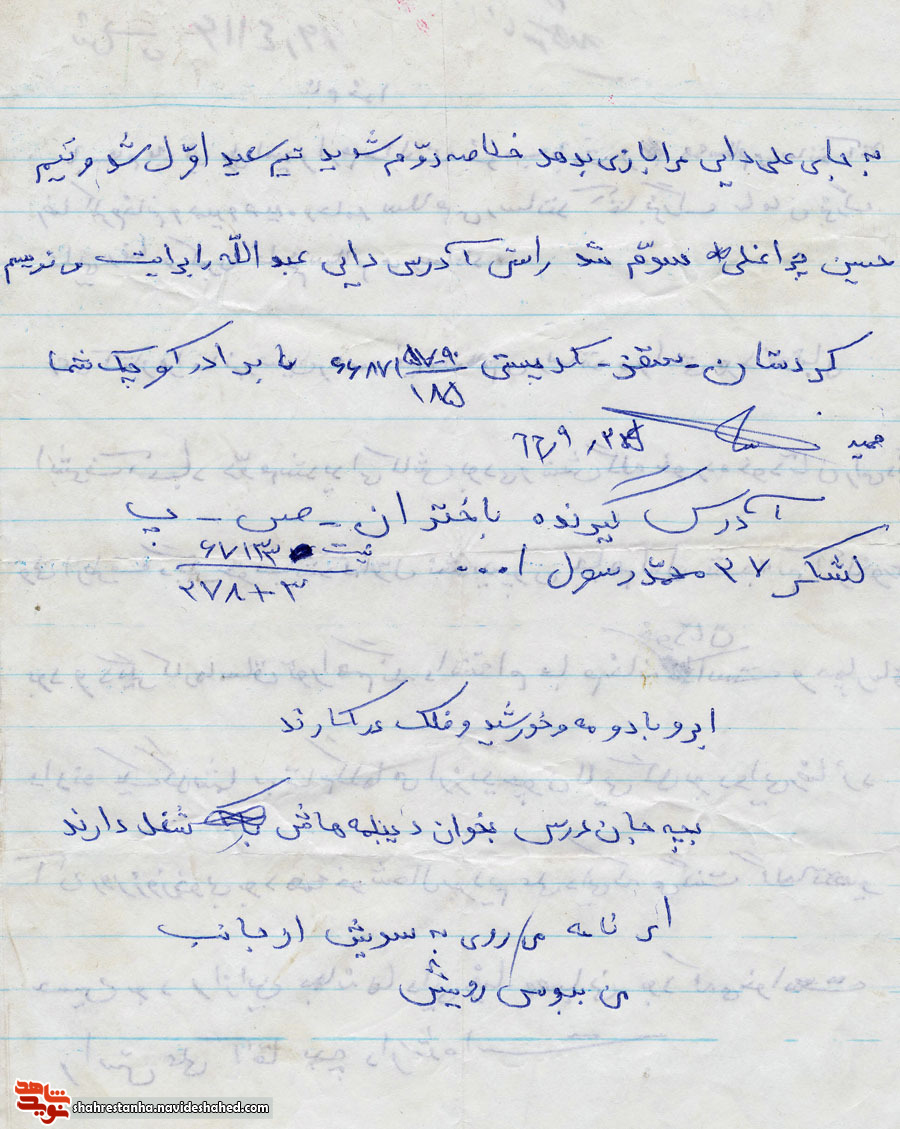 به جای علی دایی مرا بازی بدهد خلاصه دوّم شدید تیم سعید اوّل شد و تیم
حسین چراغلی سوّم شد راستی آدرس دایی عبد الله را برایت می نویسم
کردستان - سقز - کد پستی ۶۶۸۷۱ ۵۷۰۹۰ ۱۸۵ برادر کوچک شما
حمید ۶۶/۹/
آدرس گیرنده باختران - ص - پ
لشکر ۲۷ محمّد رسول ا... ثبت ۶۷۱۳۳
۲۷۸۰۳
ابر و باد و مه و خورشید و فلک در کارند
بچه جان درس بخوان دیپلمه هاش شغل دارند
ای نامه می روی به سویش از جانب
من ببوس رویش
نوید شاهد
shahrestanha.navideshahed.com